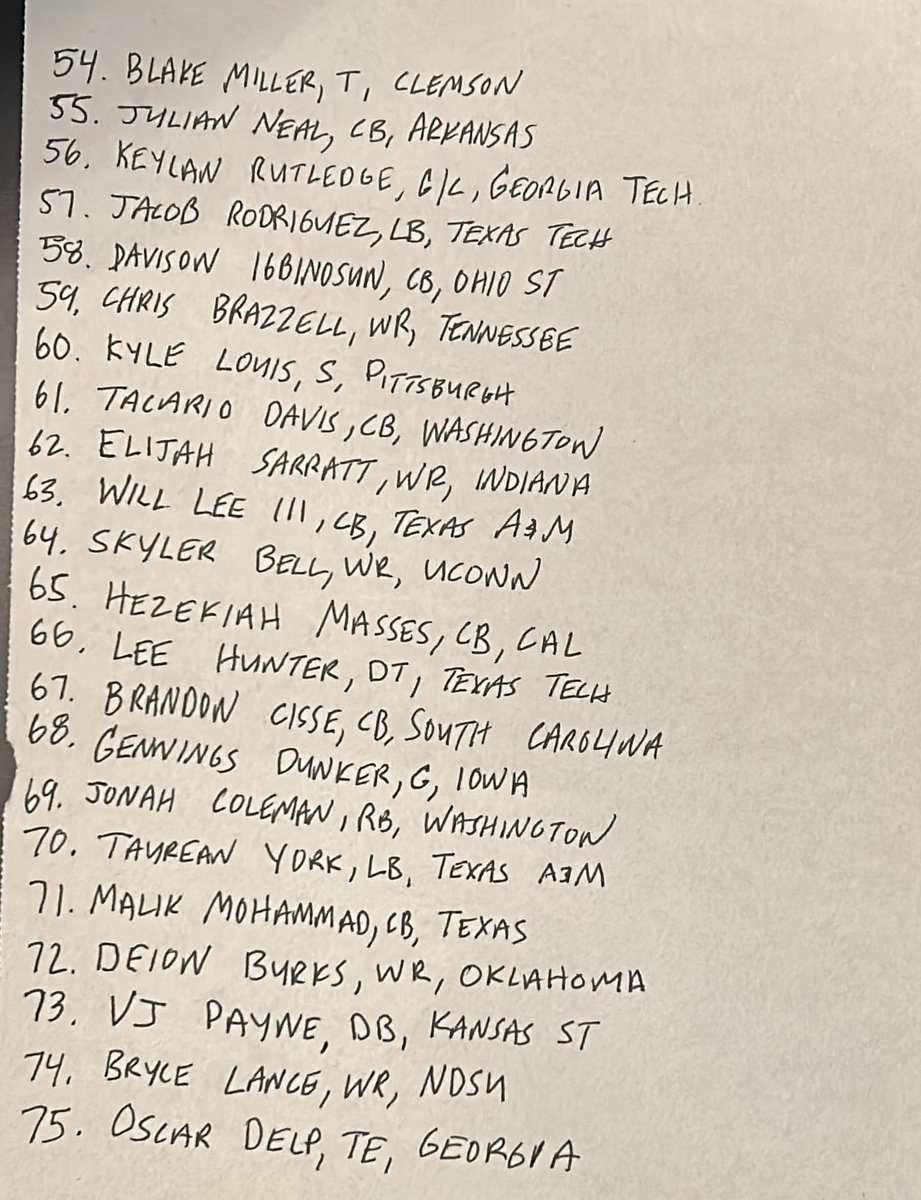 54. BLAKE MILLER, T, CLEMSON
55. JULIAN NEAL, CB, ARKANSAS
56. KEYLAN RUTLEDGE, G/C, GEORGIA TECH
57. JACOB RODRIGUEZ, LB, TEXAS TECH
58. DAVISON IGBINOSUN, CB, OHIO ST
59. CHRIS BRAZZELL, WR, TENNESSEE
60. KYLE LOUIS, S, PITTSBURGH
61. TACARIO DAVIS, CB, WASHINGTON
62. ELIJAH SARRATT, WR, INDIANA
63. WILL LEE III, CB, TEXAS A&M
64. SKYLER BELL, WR, UCONN
65. HEZEKIAH MASSES, CB, CAL
66. LEE HUNTER, DT, TEXAS TECH
67. BRANDON CISSE, CB, SOUTH CAROLINA
68. GENNINGS DUNKER, G, IOWA
69. JONAH COLEMAN, RB, WASHINGTON
70. TAUREAN YORK, LB, TEXAS A&M
71. MALIK MOHAMMAD, CB, TEXAS
72. DEION BURKS, WR, OKLAHOMA
73. VJ PAYNE, DB, KANSAS ST
74. BRYCE LANCE, WR, NDSU
75. OSCAR DELP, TE, GEORGIA